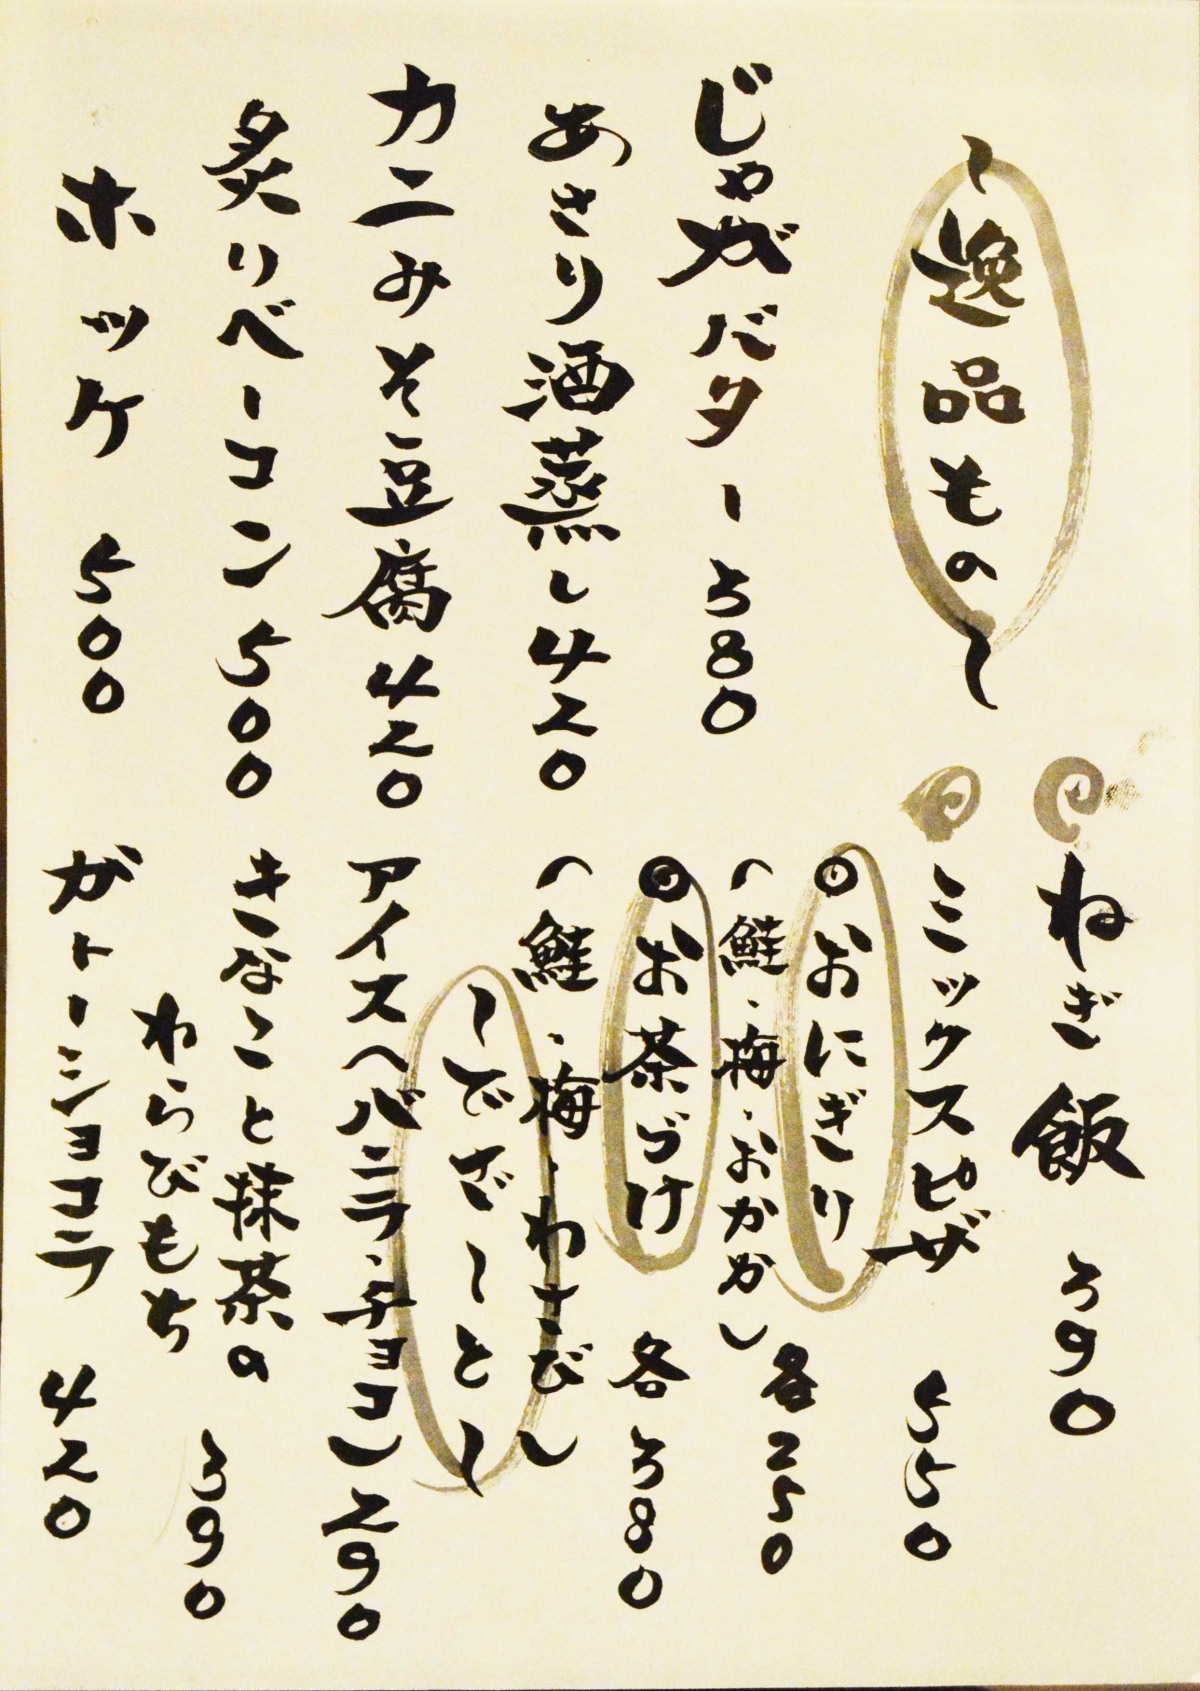 ～逸品もの～
じゃがバター 380
あさり酒蒸し 420
カニみそ豆腐 420
炙りベーコン 500
ホッケ 500
ねぎ飯 390
ミックスピザ 550
◎おにぎり 各250
（鮭・梅・おかか）
◎お茶づけ 各380
（鮭・梅・わさび）
～でざーと～
アイス（バニラ・チョコ）290
きなこと抹茶の
わらびもち 390
ガトーショコラ 420